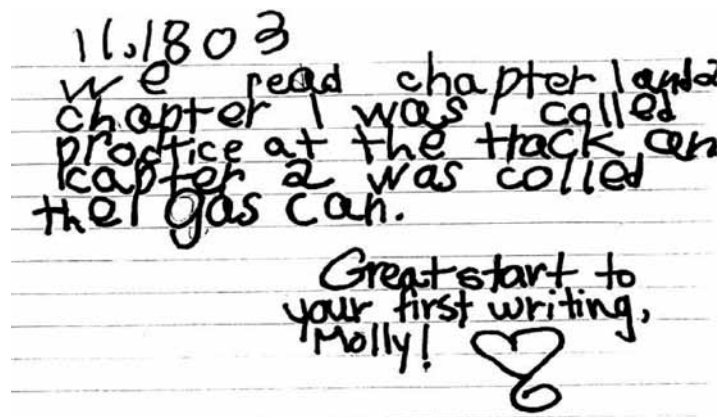 11.18 03
we read chapter 1 and 2
chapter 1 was colled
proctice at the track an
capter 2 was colled
the gas can.
Great start to
your first writing,
Molly!